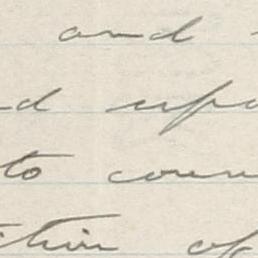 and
d upo
to coun
ition of